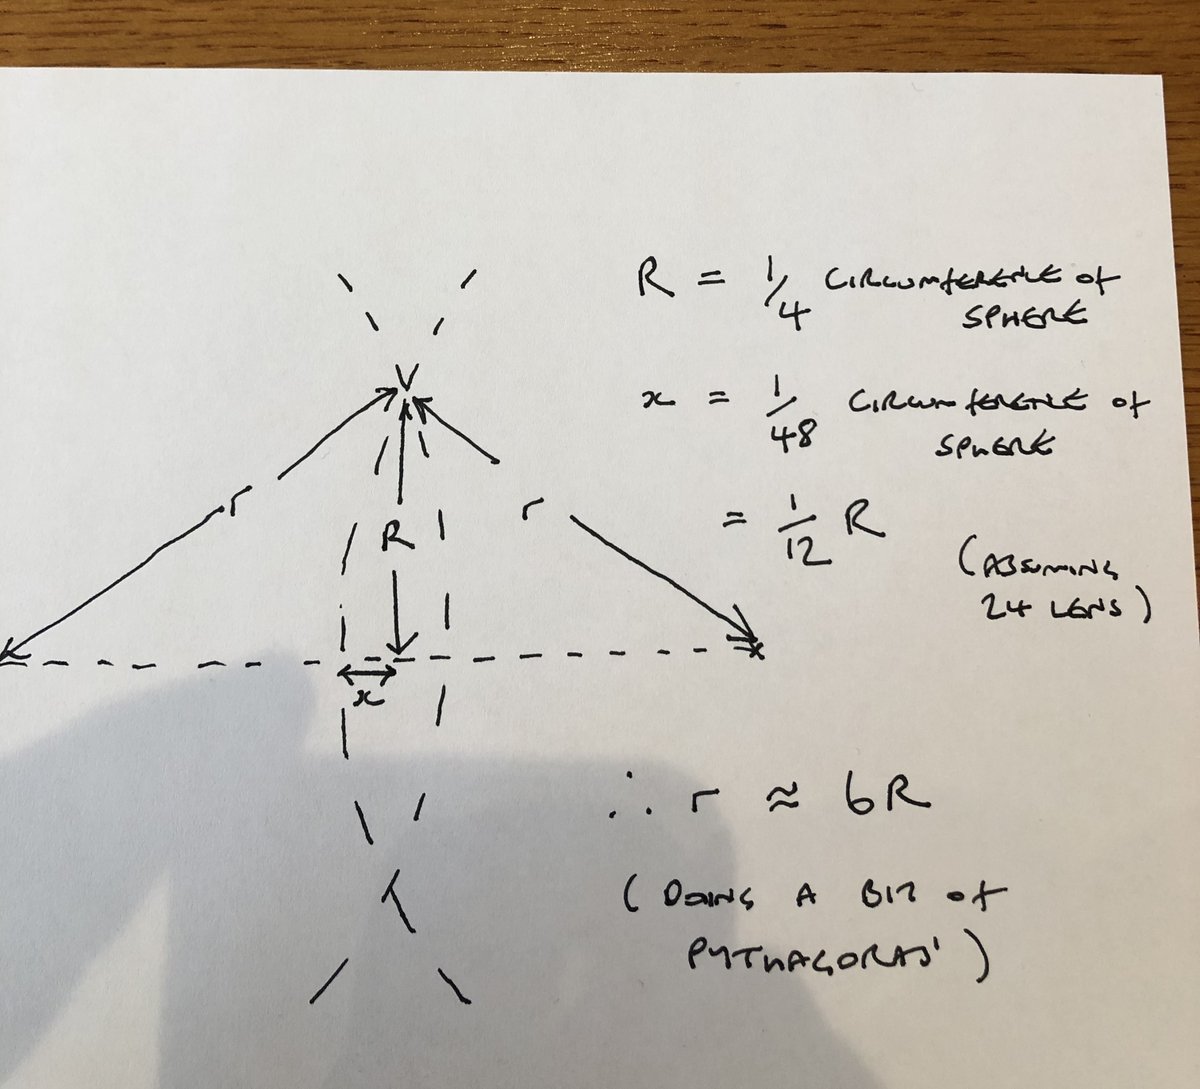 R = 1/4 CIRCUMFERENCE of
SPHERE
x = 1/48 CIRCUMFERENCE of
SPHERE
= 1/12 R
(ASSUMING
24 LENS)
r
r
R
x
∴ r ≈ 6R
(DOING A BIT of
PYTHAGORAS')